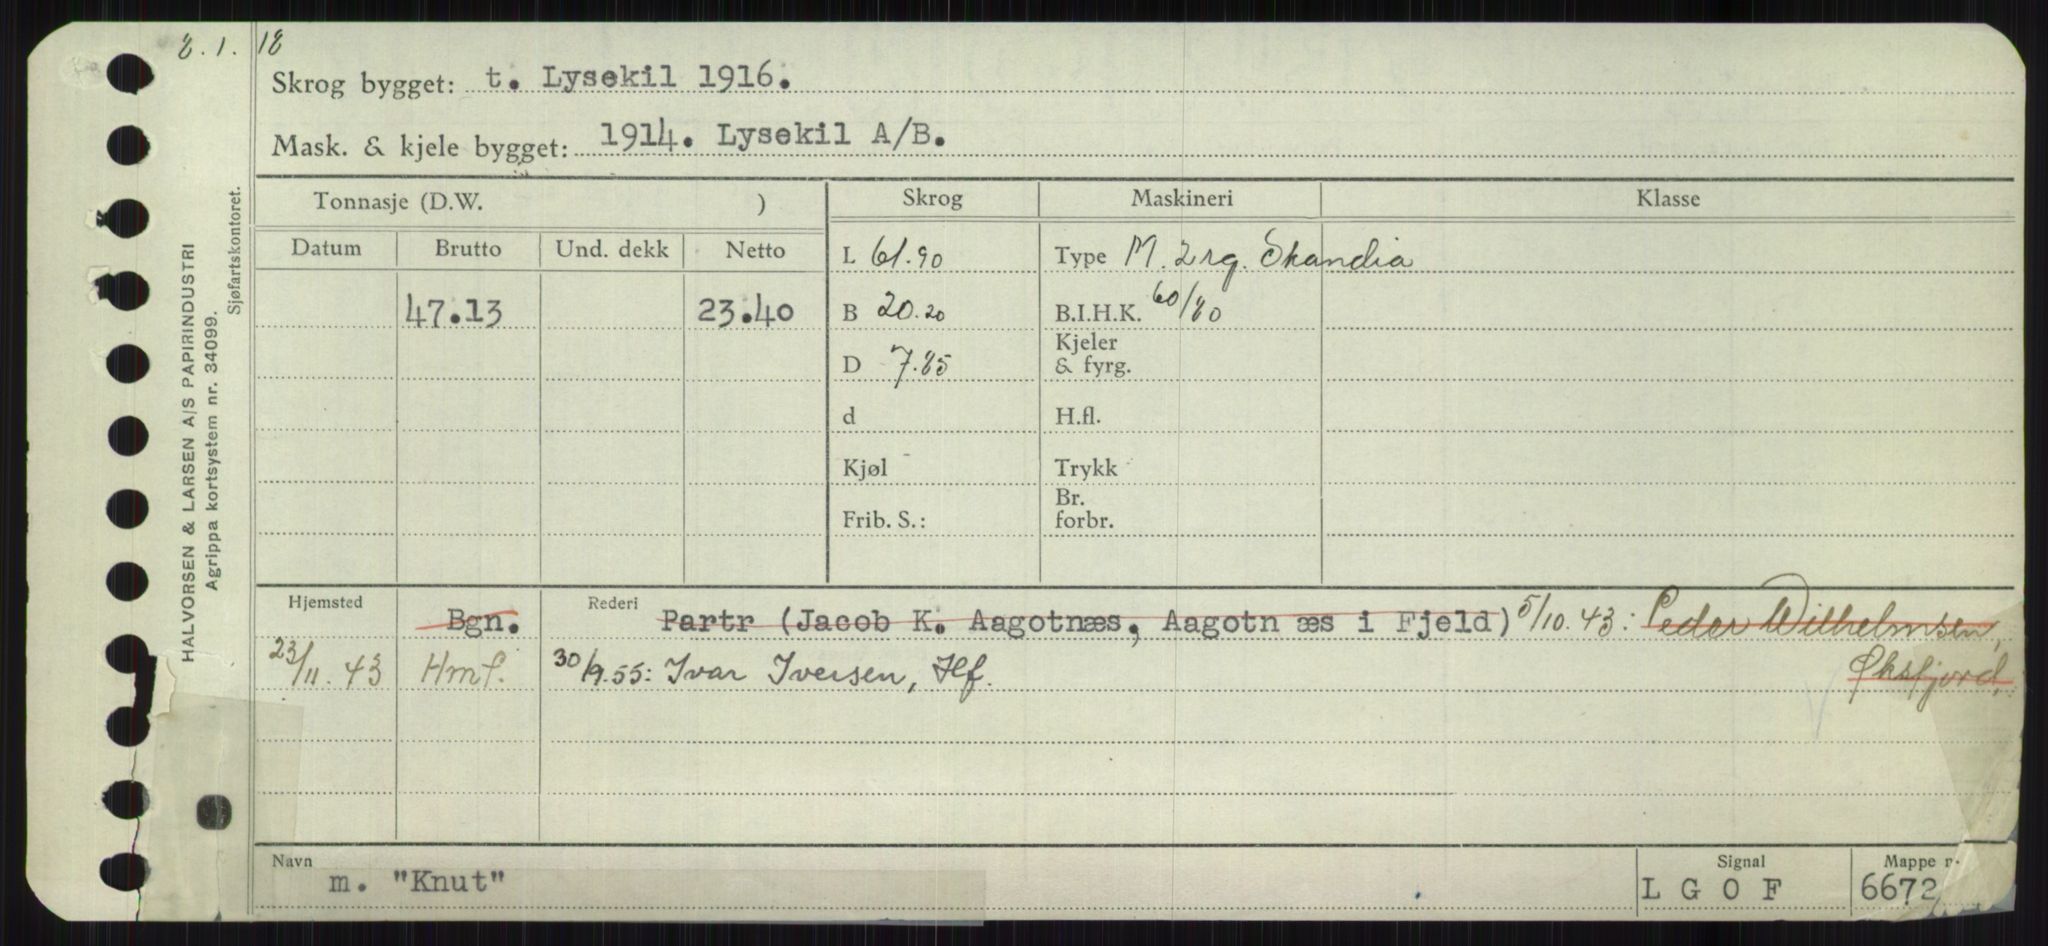 8.1.18
Skrog bygget: t. Lysekil 1916.
Mask. & kjele bygget: 1914. Lysekil A/B.
Tonnasje (D.W. ) Skrog Maskineri Klasse
Datum Brutto Und. dekk Netto L 61.90 Type M. 2 rg. Skandia
47.13 23.40 B 20.20 B.I.H.K. 60/80
D 7.85 Kjeler
& fyrg.
d H.fl.
Kjøl Trykk
Frib. S.: Br.
forbr.
Hjemsted Bgn. Rederi Partr (Jacob K. Aagotnæs, Aagotn æs i Fjeld) 5/10.43: Peder Wilhelmsen,
Øksfjord.
23/11.43 Hmf. 30/9.55: Ivar Iversen, Hf.
Navn m. "Knut" Signal LGOF Mappe n 6672
HALVORSEN & LARSEN A/S PAPIRINDUSTRI
Agrippa kortsystem nr. 34099.
Sjøfartskontoret.